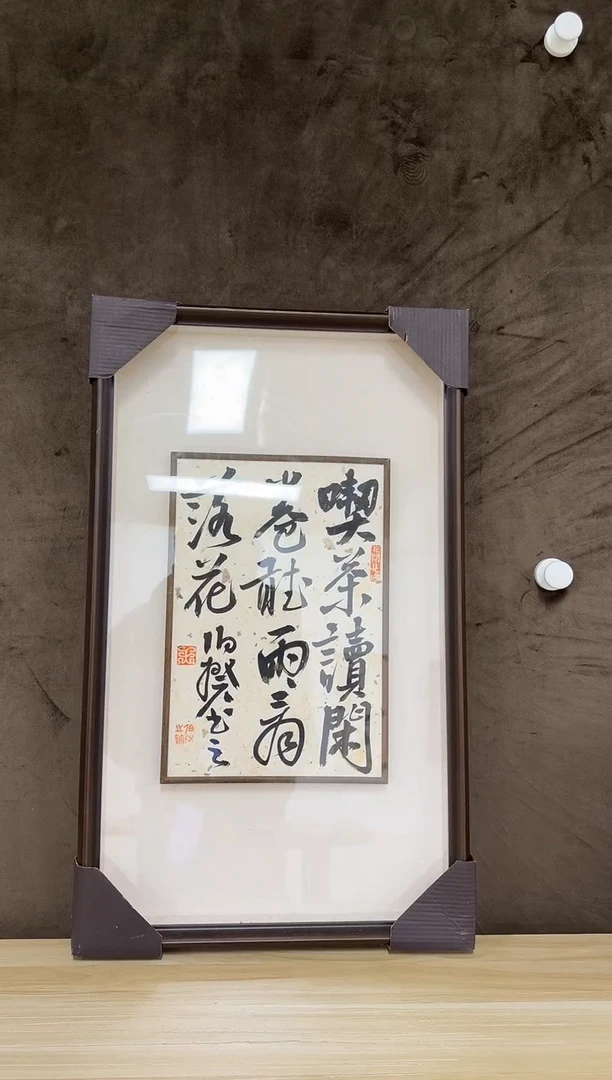 喫茶讀閑
卷聽雨看
落花